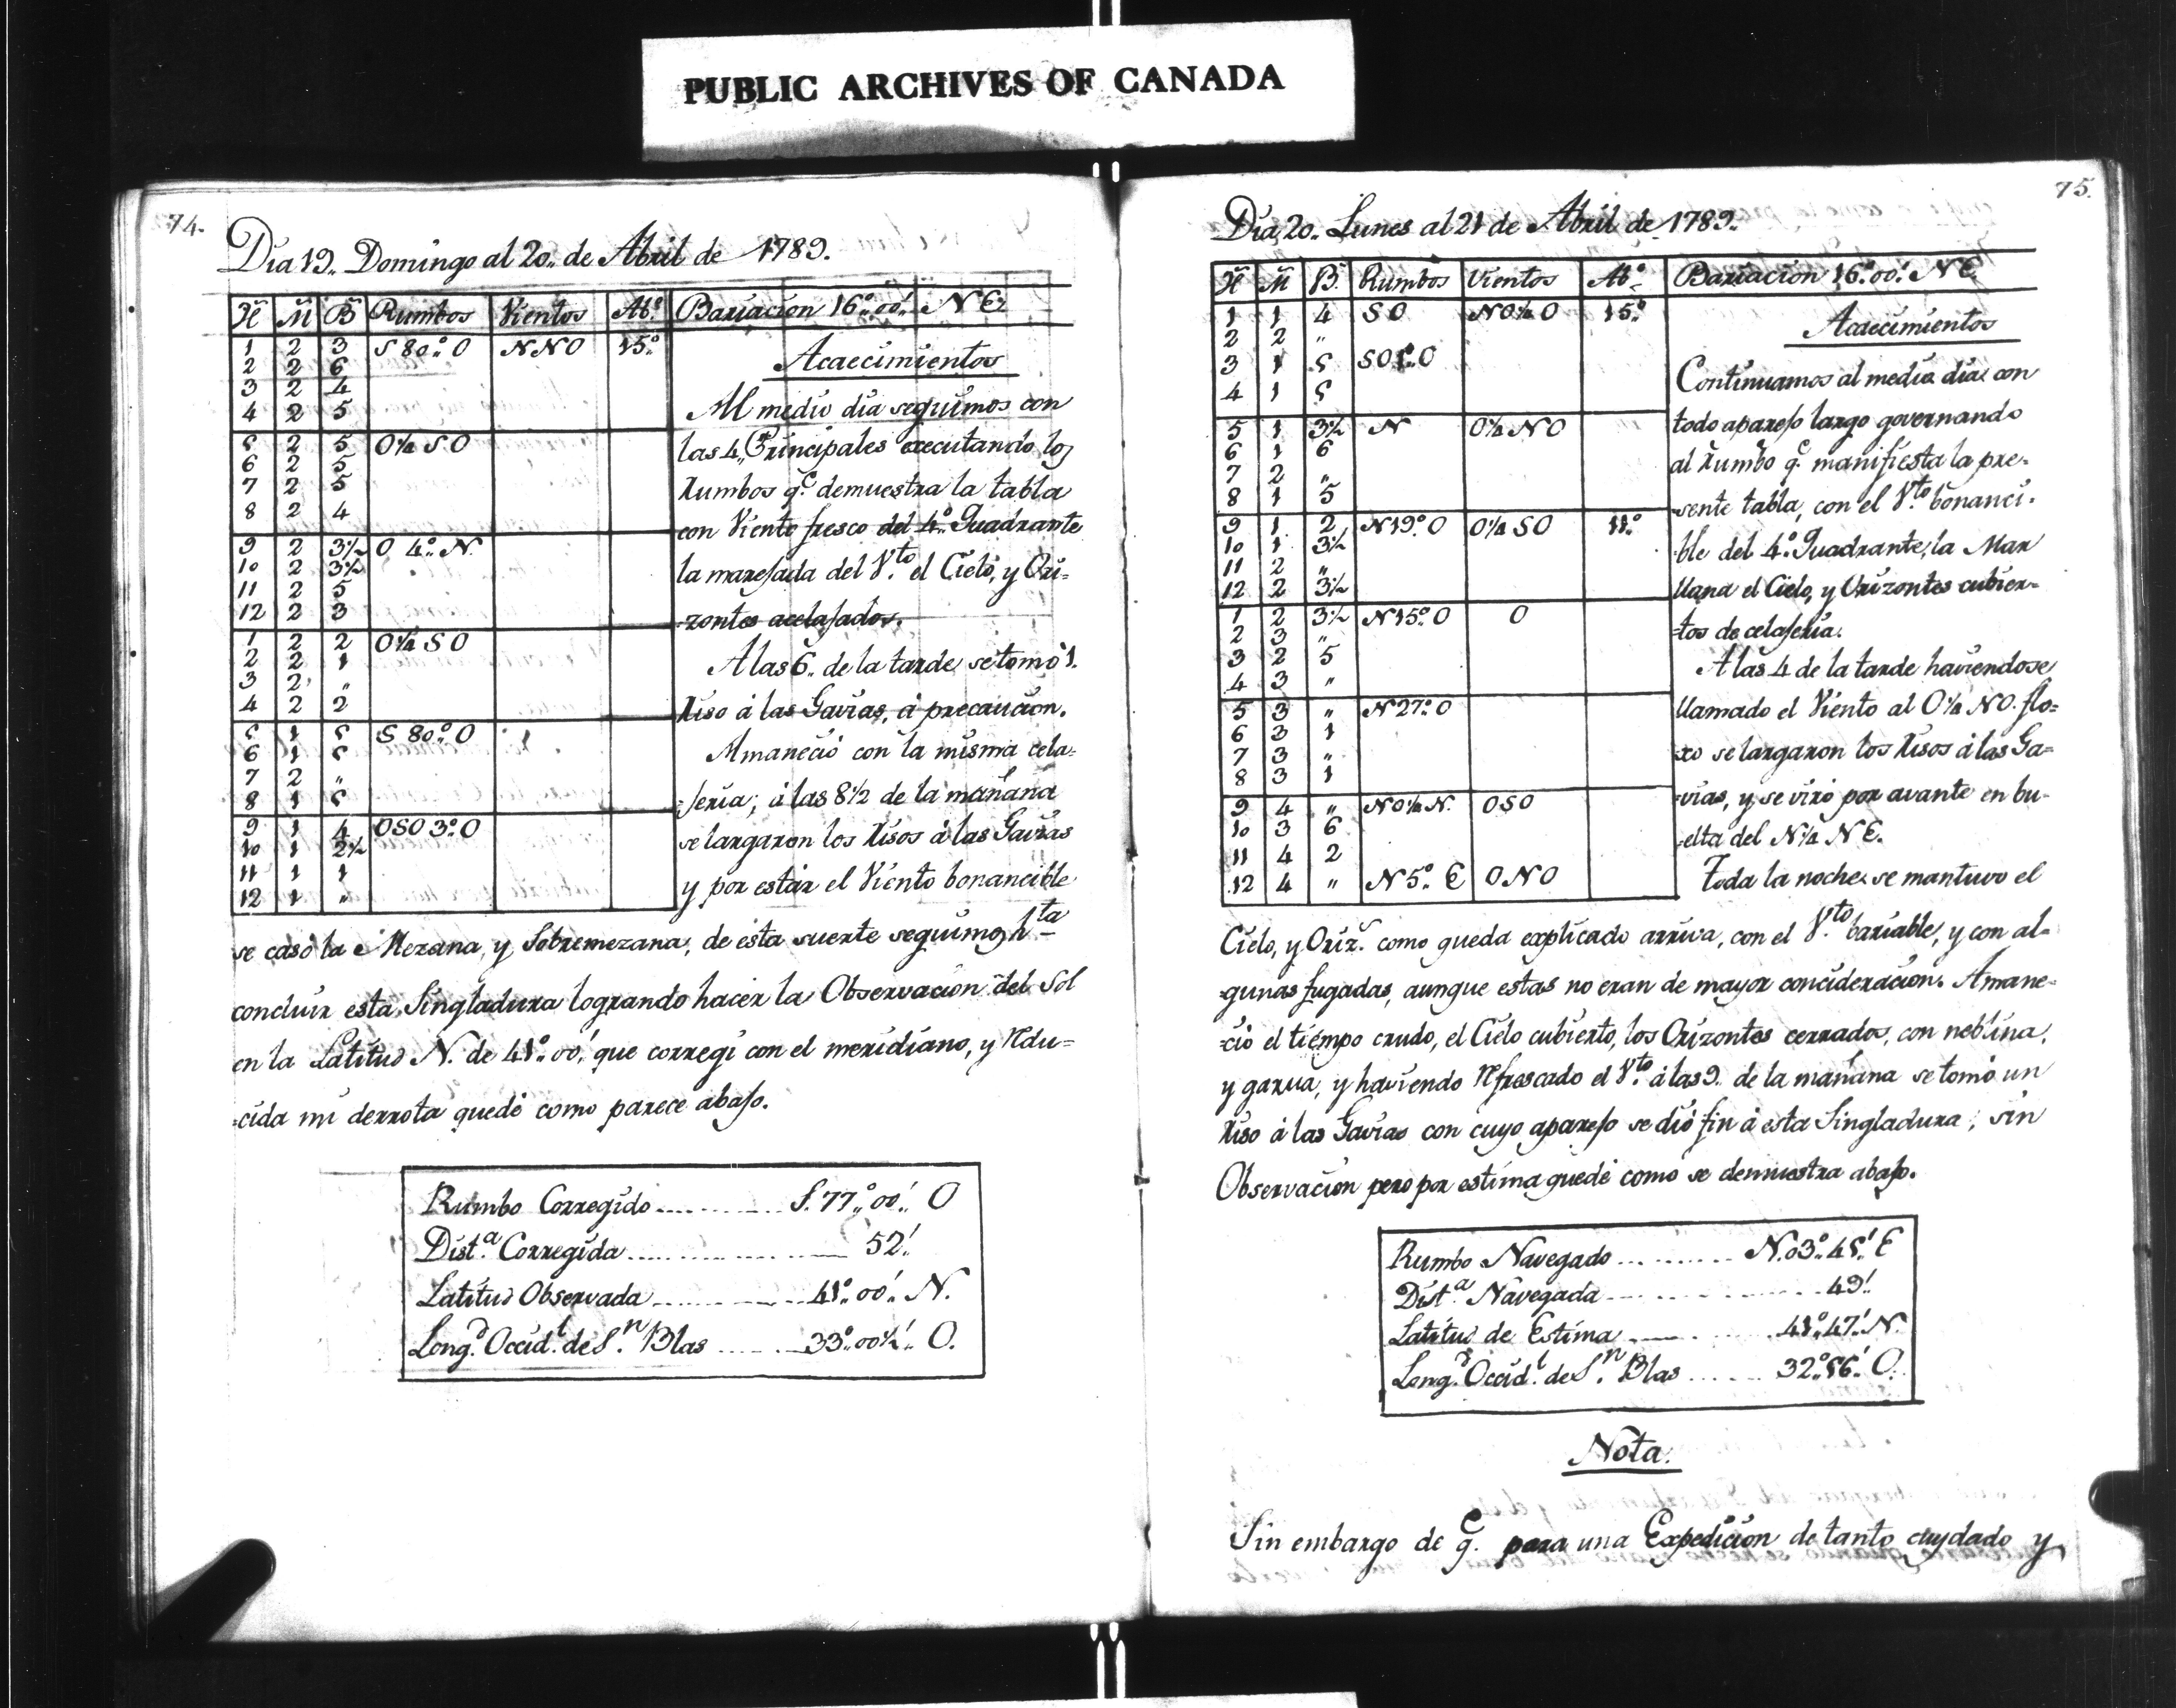 PUBLIC ARCHIVES OF CANADA
74.
Dia 19.. Domingo al 20.. de Abril de 1789.
H M B Rumbos Vientos Ab.º Bariacion 16º..00'.. N E.
1 2 3 S 80..º O N N O 15..º
2 2 6
3 2 4
4 2 5
5 2 5 O¼ S O
6 2 5
7 2 5
8 2 4
9 2 3½ O 4..º N.
10 2 3½
11 2 5
12 2 3
1 2 2 O¼ S O
2 2 1
3 2 "
4 2 2
5 1 5 S 80..º O
6 1 5
7 2 "
8 1 5
9 1 4 O S O 3..º O
10 1 2½
11 1 1
12 1 "
Acaecimientos
Al medio dia seguimos con
las 4,, Principales executando los
Rumbos q.e demuestra la tabla
con Viento fresco del 4..º Quadrante
la marejada del V.to el Cielo, y Ori-
zontes acelajados.
A las 6.. de la tarde se tomó 1.
Riso á las Gavias, á precaucion.
Amaneció con la misma cela-
jeria; á las 8½ de la mañana
se largaron los Risos á las Gavias
y por estár el Viento bonancible
se casó la Mezana, y Sobremezana, de esta suerte seguimos h.ta
concluir esta Singladura logrando hacer la Observacion del Sol
en la Latitud N. de 41º..00'. que corregi con el meridiano, y Redu=
=cida mi derrota quedé como parece abajo.
Rumbo Corregido ........... S. 77º..00'.. O
Dist.a Corregida ................ 52'..
Latitud Observada ............ 41º..00'.. N.
Long.d Occid.l de S.n Blas ...... 33º..00½'.. O.
75.
Dia 20.. Lunes al 21 de Abril de 1789..
H M B. Rumbos Vientos Ab.º Bariacion 16º..00'. N E
1 1 4 S O N O¼ O 15..º
2 2 "
3 1 5 S O 1..º O
4 1 5
5 1 3½ N O¼ N O
6 1 6
7 2 "
8 1 5
9 1 2 N 19..º O O¼ S O 11..º
10 1 3½
11 2 "
12 2 3½
1 2 3½ N 15..º O O
2 3 "
3 2 5
4 3 "
5 3 " N 27..º O
6 3 1
7 3 "
8 3 1
9 4 " N O¼ N. O S O
10 3 6
11 4 2
12 4 " N 5..º E O N O
Acaecimientos
Continuamos al medio dia con
todo aparejo largo governando
al Rumbo q.e manifiesta la pre-
sente tabla, con el V.to bonanci-
ble del 4.º Quadrante, la Mar
llana el Cielo, y Orizontes cubier=
=tos de celajeria.
A las 4 de la tarde haviendose
llamado el Viento al O¼ N O. flo=
xo se largaron los Risos á las Ga=
vias, y se viró por avante en bu-
elta del N¼ N E.
Toda la noche se mantuvo el
Cielo, y Oriz.s como queda explicado arriva, con el V.to bariable, y con al=
gunas fugadas, aunque estas no eran de mayor concideracion. Amane-
=ció el tiempo crudo, el Cielo cubierto, los Orizontes cerrados, con neblina,
y garua, y haviendo Refrescado el V.to á las 9. de la mañana se tomó un
Riso á las Gavias con cuyo aparejo se dió fin á esta Singladura; sin
Observacion pero por estima quedé como se demuestra abajo.
Rumbo Navegado .......... N. 03º..45'.. E
Dist.a Navegada ................ 49'..
Latitud de Estima ............ 41º..47'.. N.
Long.d Occid.l de S.n Blas ...... 32º..56'. O.
Nota.
Sin embargo de q.e para una Expedicion de tanto cuydado y